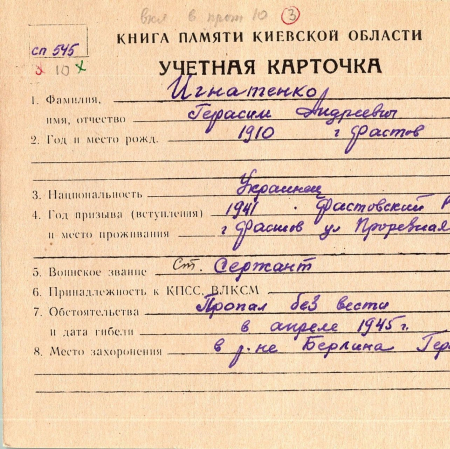 вкл в прот 10 3
КНИГА ПАМЯТИ КИЕВСКОЙ ОБЛАСТИ
сп 545
10
УЧЕТНАЯ КАРТОЧКА
1. Фамилия, Игнатенко
имя, отчество Герасим Андреевич
2. Год и место рожд. 1910 г Фастов
3. Национальность Украинец
4. Год призыва (вступления) 1941 . Фастовский Р
и место проживания г Фастов ул Прорезная
5. Воинское звание Ст. Сержант
6. Принадлежность к КПСС, ВЛКСМ
7. Обстоятельства Пропал без вести
и дата гибели в апреле 1945 г.
8. Место захоронения в р-не Берлина Гер